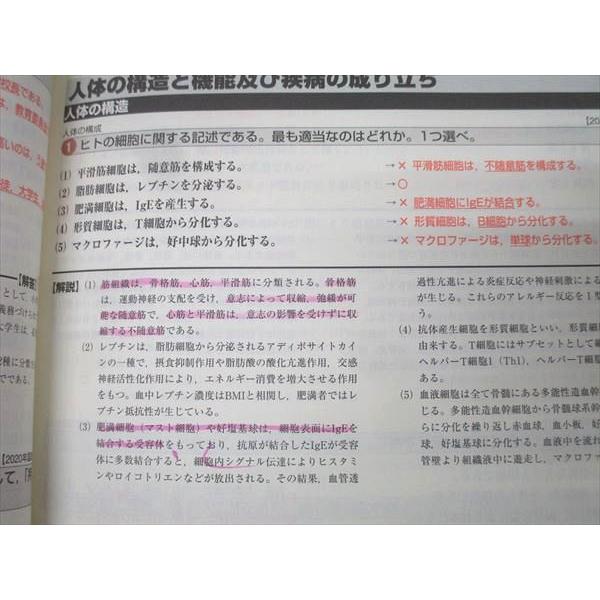 校長である。
人体の構造と機能及び疾病の成り立ち
人体の構造
人体の構成
❶ ヒトの細胞に関する記述である。最も適当なのはどれか。1つ選べ。
(1) 平滑筋細胞は，随意筋を構成する。
→× 平滑筋細胞は，不随意筋を構成する。
(2) 脂肪細胞は，レプチンを分泌する。
→○
(3) 肥満細胞は，IgEを産生する。
→× 肥満細胞にIgEが結合する。
(4) 形質細胞は，T細胞から分化する。
→× 形質細胞は，B細胞から分化する。
(5) マクロファージは，好中球から分化する。
→× マクロファージは，単球から分化する。
【解説】(1) 筋組織は，骨格筋，心筋，平滑筋に分類される。骨格筋
は，運動神経の支配を受け，意志によって収縮，弛緩が可
能な随意筋で，心筋と平滑筋は，意志の影響を受けずに収
縮する不随意筋である。
(2) レプチンは，脂肪細胞から分泌されるアディポサイトカイ
ンの一種で，摂食抑制作用や脂肪酸の酸化亢進作用，交感
神経活性化作用により，エネルギー消費を増大させる作用
をもつ。血中レプチン濃度はBMIと相関し，肥満者ではレ
プチン抵抗性が生じている。
(3) 肥満細胞（マスト細胞）や好塩基球は，細胞表面にIgEを
結合する受容体をもっており，抗原が結合したIgEが受容
体に多数結合すると，細胞内シグナル伝達によりヒスタミ
ンやロイコトリエンなどが放出される。その結果，血管透
過性亢進による炎症反応や神経刺激による
が生じる。これらのアレルギー反応をⅠ型
う。
(4) 抗体産生細胞を形質細胞といい，形質細胞
由来する。T細胞にはサブセットとして細
ヘルパーT細胞1（Th1），ヘルパーT細胞
(5) 血液細胞は全て骨髄にある多能性造血幹細
じる。多能性造血幹細胞から骨髄球系幹
らに分化を繰り返し赤血球，血小板，好
球，好塩基球に分化する。血液中を流れ
管壁より組織液中に遊走し，マクロファ